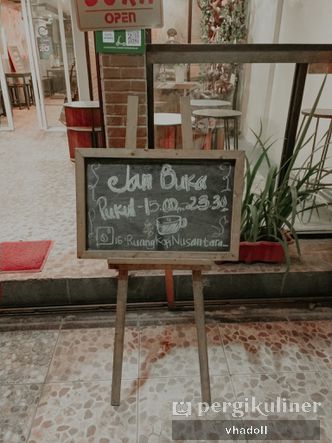 OPEN
Jam Buka
Pukul - 15.00 - 23.30
IG: Ruang Kopi Nusantara
pergikuliner
vhadoll